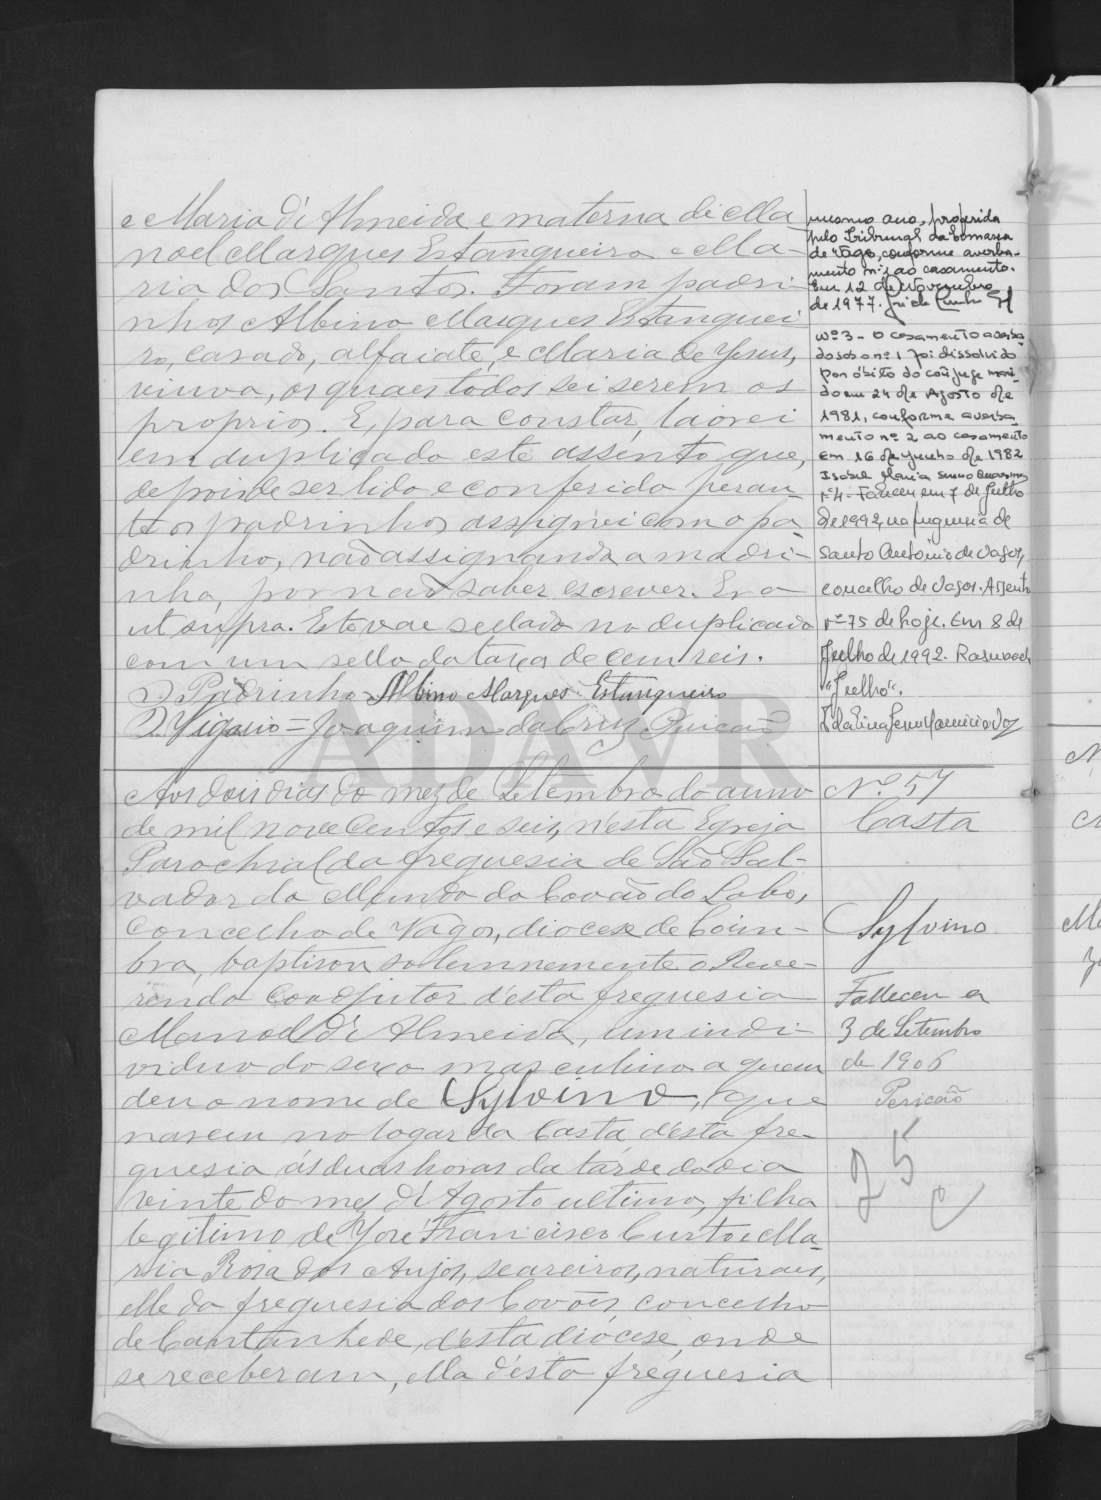 e Maria d'Almeida e materna de Ma
noel Marques Estanqueiro e Ma-
ria dos Santos. Foram padri-
nhos Albino Marques Estanquei
ro, casado, alfaiate, e Maria de Jesus,
viuva, os quaes todos sei serem os
proprios. E, para constar, lavrei
em duplicado este assento que,
depois de ser lido e conferido peran-
te os padrinhos assignei com o pa
drinho, não assignando a madri-
nha, por não saber escrever. Era
ut supra. Este vae sellado no duplicado
com um sello da taxa de cem reis.
O Padrinho Albino Marques Estanqueiro
O Vigario = Joaquim da Cruz Pericão
mesmo ano, proferida
pelo Tribunal da Comarca
de Vagos, conforme averba-
mento nº 1 ao casamento.
Em 12 de Novembro
de 1977.
Nº 3 - O casamento averba
do sob o nº 1 foi dissolvido
por óbito do cônjuge mari-
do em 24 de Agosto de
1981, conforme averba
mento nº 2 ao casamento
Em 16 de Junho de 1982
Isabel Maria
nº 4 - Faleceu em 7 de Julho
de 1992, na freguesia de
Santo António de Vagos,
concelho de Vagos. Assento
nº 75 de hoje. Em 8 de
Julho de 1992. Rasurado
"Julho".
ADAVR
Aos dois dias do mez de Setembro do anno
de mil novecentos e seis, n'esta Egreja
Parochial da freguesia de São Sal-
vador do Mundo do Covão do Lobo,
Concelho de Vagos, diocese de Coim-
bra, baptisou solemnemente o Reve-
rendo Coadjutor d'esta freguesia
Manoel d'Almeida, um indi-
viduo do sexo masculino a quem
deu o nome de Sylvino, que
nasceu no logar da Casta d'esta fre-
guesia ás duas horas da tarde do dia
vinte do mez d'Agosto ultimo, filho
legitimo de José Francisco Curto e Ma-
ria Rosa dos Anjos, seareiros, naturaes,
elle da freguesia dos Covões, concelho
de Cantanhede, d'esta diócese, onde
se receberam, ella d'esta freguesia
Nº 57
Casta
Sylvino
Falleceu a
3 de Setembro
de 1906
Pericão
25